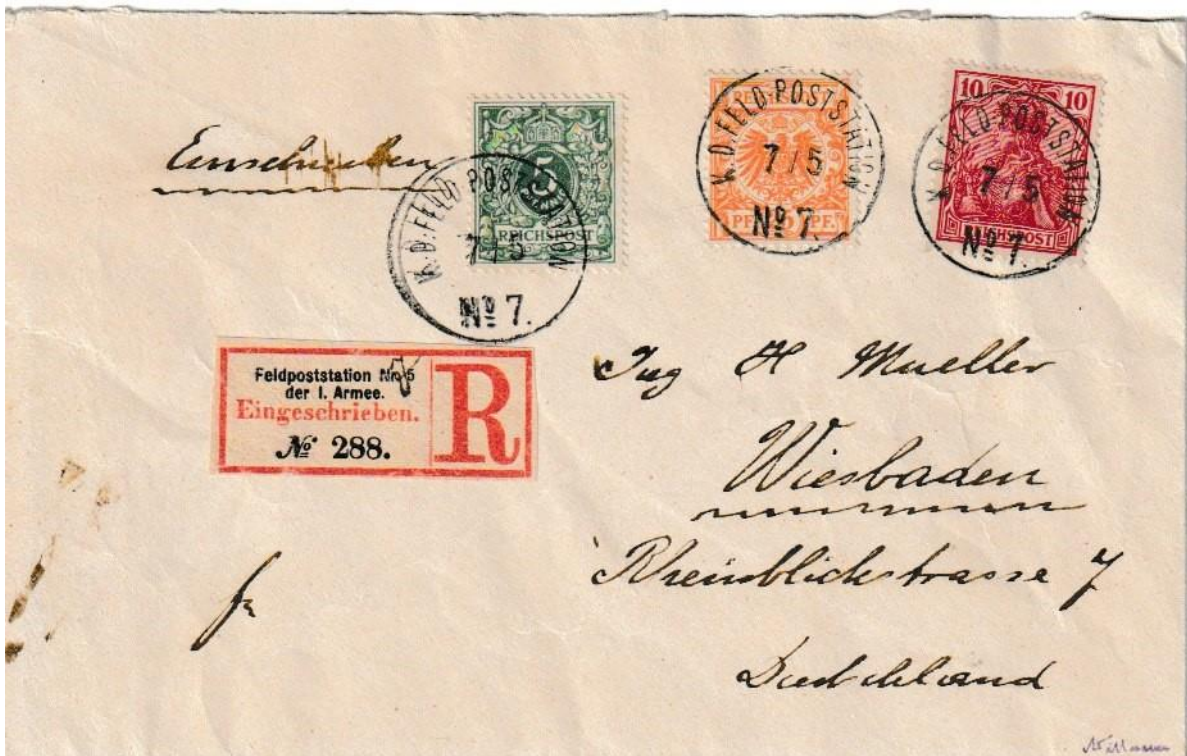 Einschreiben
5
REICHSPOST
K.D. FELD-POSTSTATION
7/5
Nº 7.
K.D. FELD-POSTSTATION
7/5
Nº 7.
10 10
K.D. FELD-POSTSTATION
7/5
Nº 7.
Feldpoststation Nr. 5
der I. Armee.
Eingeschrieben.
Nº 288.
R
Ing H Mueller
Wiesbaden
Rheinblickstrasse 7
Deutschland